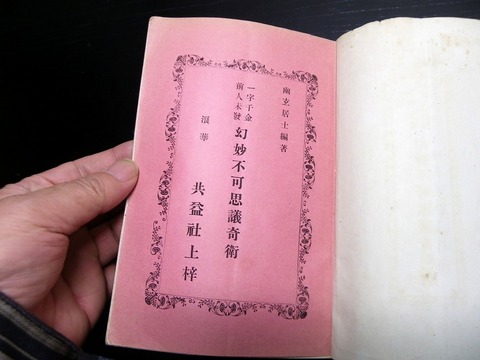 幽玄居士編著
一字千金
前人未發
幻妙不可思議奇術
浪華
共益社上梓